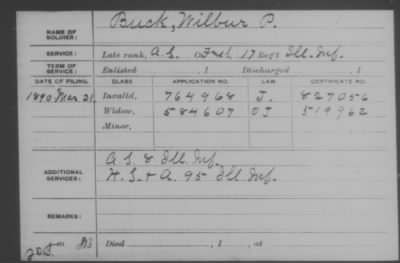 NAME OF SOLDIER: Buck, Wilbur P.
SERVICE: Late rank, A.S. Co F&S, 17 Reg't Ill. Inf.
TERM OF SERVICE: Enlisted , 1 Discharged , 1
DATE OF FILING. CLASS APPLICATION NO. LAW CERTIFICATE NO.
1890 Mar. 31 Invalid, 764968 J. 827056
Widow, 584607 O J 519962
Minor,
ADDITIONAL SERVICES: A S 8 Ill. Inf.
H. S. + A. 95 Ill. Inf.
REMARKS:
Died , 1 , at